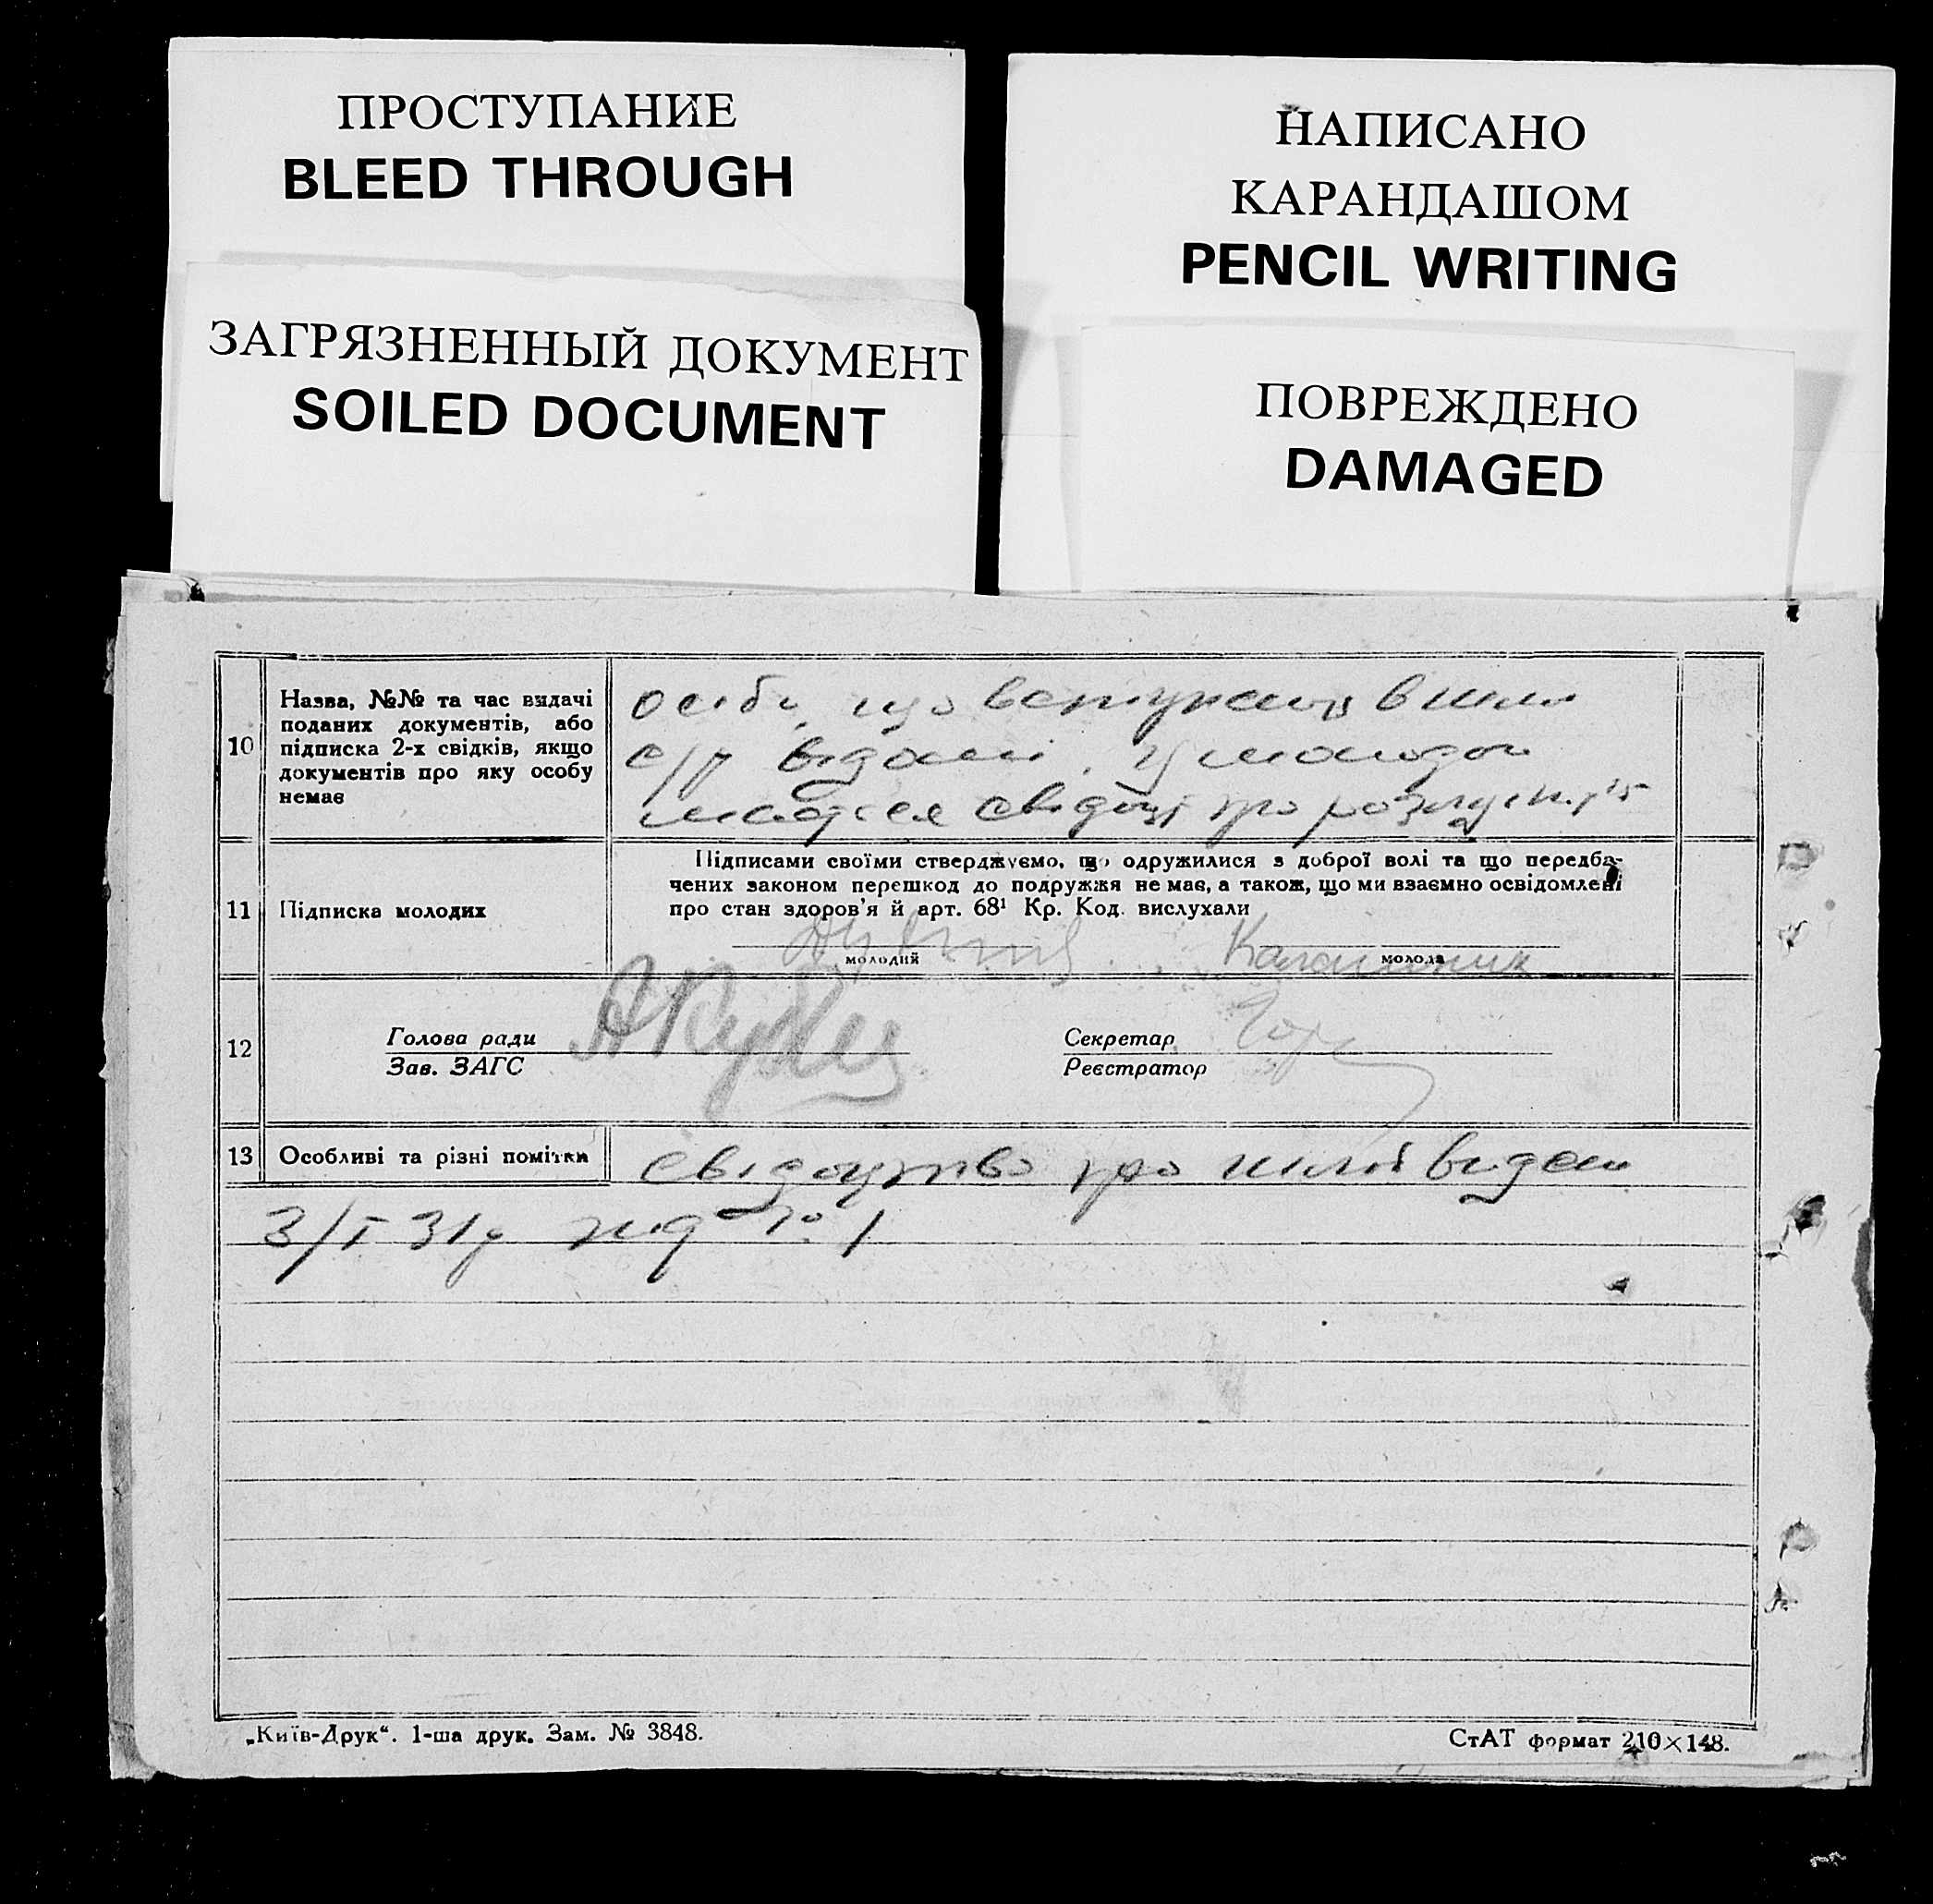 ПРОСТУПАНИЕ
BLEED THROUGH
ЗАГРЯЗНЕННЫЙ ДОКУМЕНТ
SOILED DOCUMENT
НАПИСАНО
КАРАНДАШОМ
PENCIL WRITING
ПОВРЕЖДЕНО
DAMAGED
10
Назва, №№ та час видачі
поданих документів, або
підписка 2-х свідків, якщо
документів про яку особу
немає
особи, що вступают в шлюб
с/р відомі. У молодої
свідоц про
11
Підписка молодих
Підписами своїми стверджуємо, що одружилися з доброї волі та що передба-
чених законом перешкод до подружжя не має, а також, що ми взаємно освідомлені
про стан здоров'я й арт. 68¹ Кр. Код. вислухали
Калашник
молодий
молода
12
Голова ради
Зав. ЗАГС
Секретар
Реєстратор
13
Особливі та різні помітки
свідоцтво про шлюб видан
3/I 31 р під № 1
„Київ-Друк“. 1-ша друк. Зам. № 3848.
СтАТ формат 210×148.